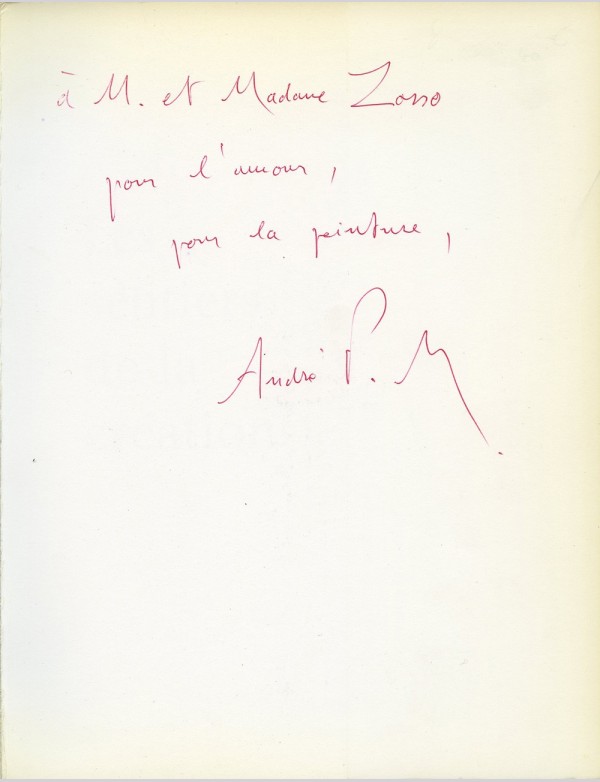 à M. et Madame Zosso
pour l'amour,
pour la peinture,
André P. M.